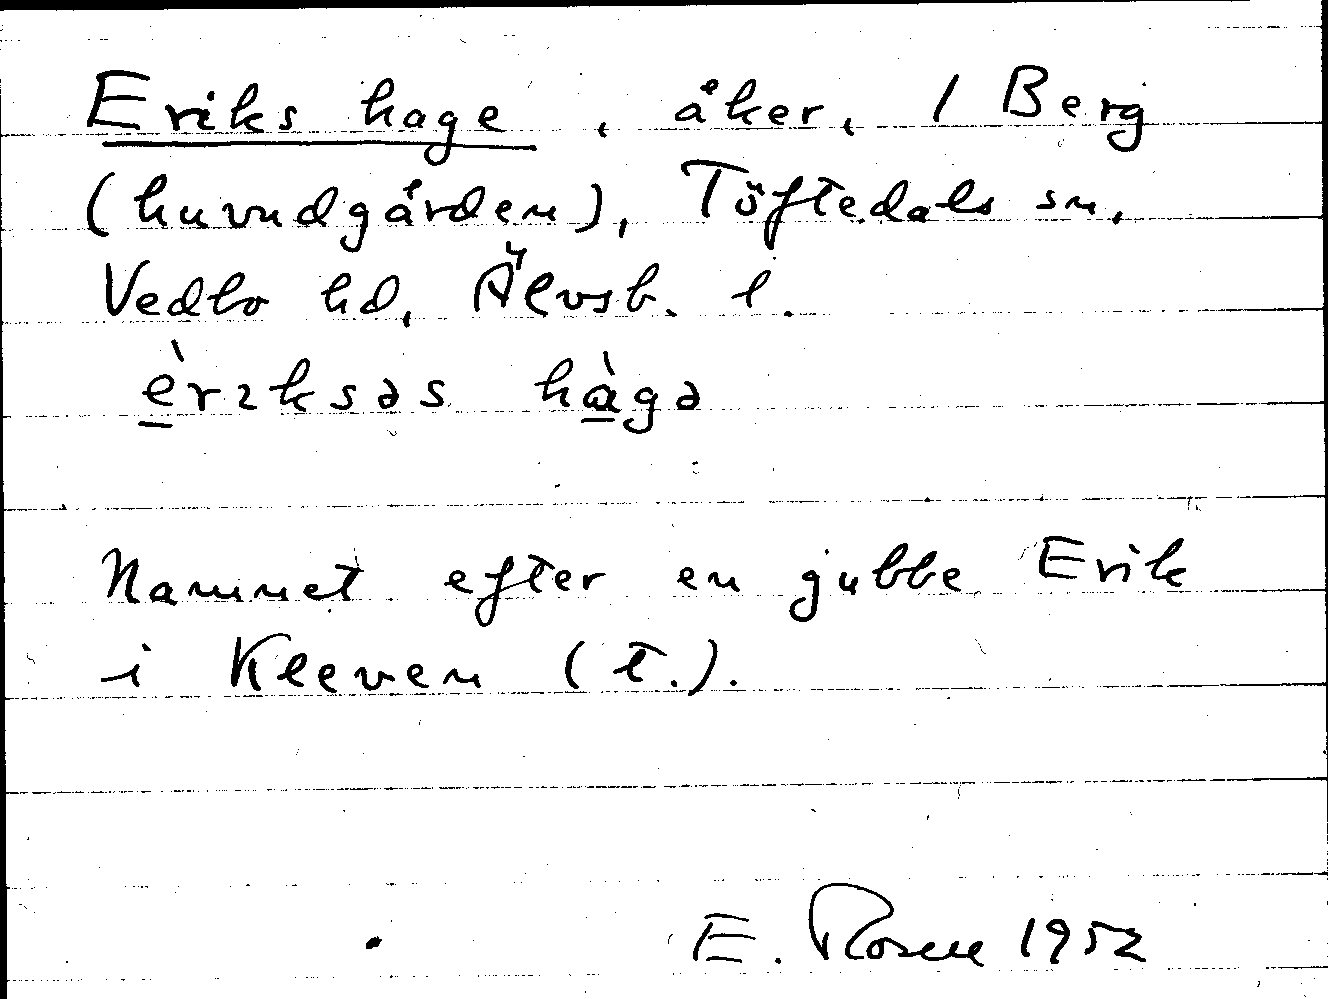 Eriks hage, åker, 1 Berg
(huvudgården), Töftedals sn,
Vedbo hd, Älvsb. l.
è̱rɩksəs hà̱gə
Namnet efter en gubbe Erik
i Kleven (t.).
E. Rosen 1952